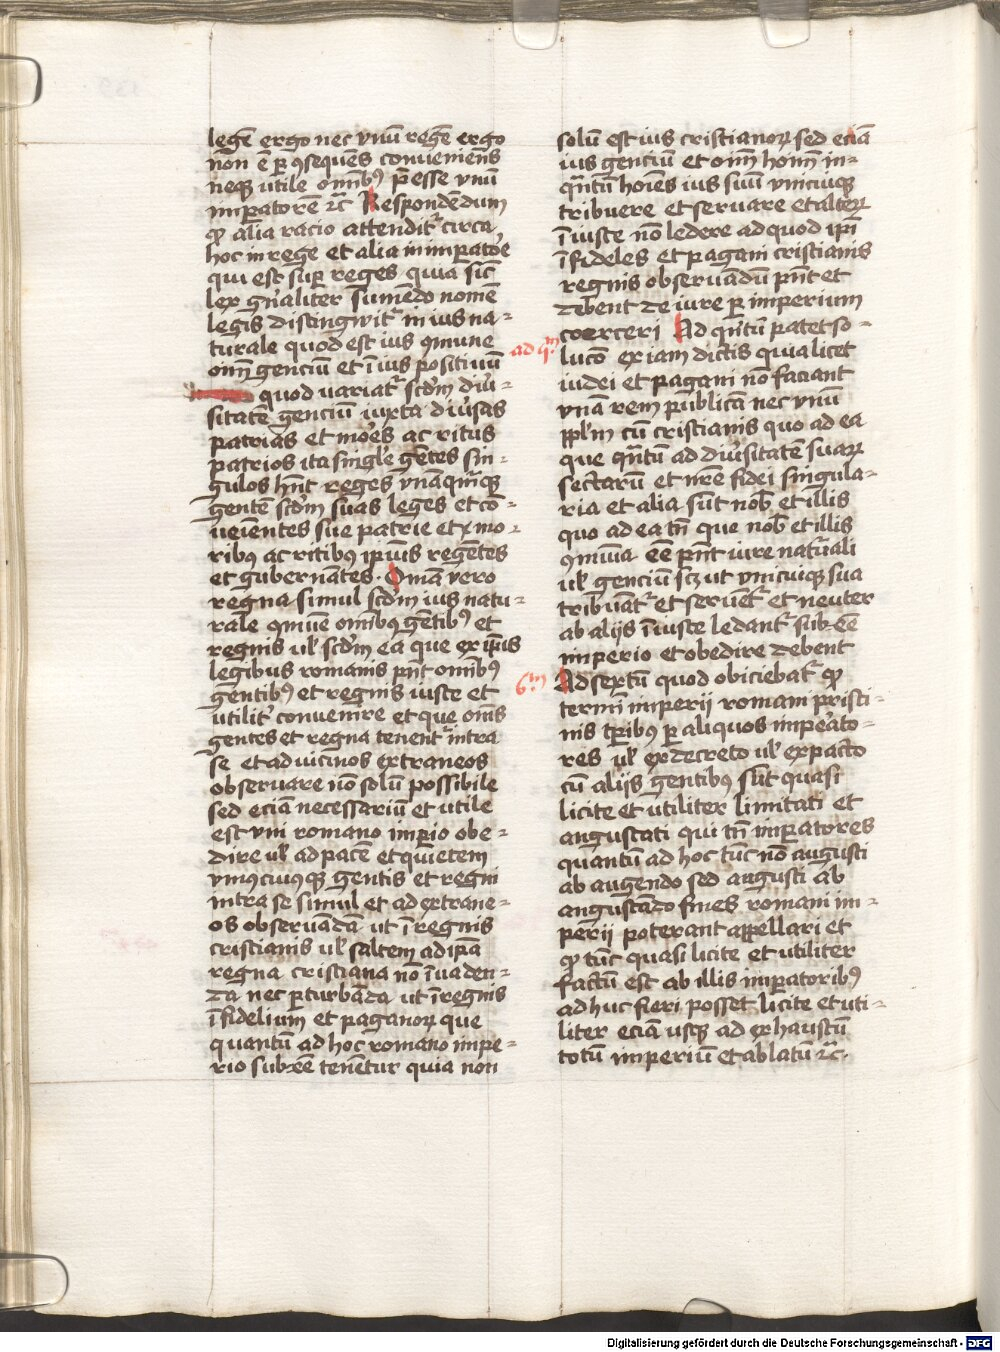 legē ergo nec vnū regē ergo
non ē ꝑ ꝯsequēs conveniens
neqꝫ vtile omībꝰ p̄esse vnū
imꝑatorē ⁊c̄ Respondēdum
ꝙ alia racio attendit᷑ circa
hoc in rege et alia in imꝑatoꝛe
qui est suꝑ reges quia sic̄
lex gn̄aliter sumēdo nomē
legis distingwit᷑ in ius na-
turale quod est ius ꝯmune
om̄ gencium et ī ius positiuū
quod uariat᷑ scd̄m diu̾-
sitatē genciū iuxta diu̾sas
patrias et moꝛes ac ritus
patrios ita singl̄e gētes sin-
gulos hn̄t reges vnāqm̄qꝫ
gentē scd̄m suas leges et co-
ueīentes sue patrie et ex mo-
ribꝰ ac ritibꝰ ip̄ius regētes
et gubernātes · Omā vero
regna simul scd̄m ius natu-
rale ꝯmūe omībꝰ gētibꝰ et
regnis ul̄ scd̄m ea que ex ip̄is
legibus romanis pn̄t omībꝰ
gentibꝰ et regnis iuste et
utilit᷑ convenire et que om̄s
gentes et regna tenent᷑ intra
se et ad uicinos extraneos
obseruare nō solū possibile
sed eciam necessariū et utile
est vni romano imꝑio obe-
dire ul̄ ad pacē et quietem
vniuscuiusqꝫ gentis et regni
intra se simul et ad extrane-
os obseruādā ut ī regnis
cristianis ul̄ saltem ad ip̄a
regna cristiana nō īuaden-
da nec ꝑturbāda ut ī regnis
īfidelium et paganoꝝ que
quantū ad hoc romano impe-
rio subeē tenētur quia non
solū est ius cristianoꝝ sed eciā
ius genciū et om̄ hoīm in-
qn̄tū hoīes ius suū vnicuiqꝫ
tribuere et seruare et alteꝝ
īiuste nō ledere ad quod ip̄i
īfideles et pagani cristianis
regnis obseruādū pn̄t et
debent de iure ꝑ imperium
coerceri Ad qn̄tum patet so-
ad qm̄
lucō ex iam dictis quia licet
iudei et pagani nō faciant
vnā rem publicā nec vnū
ppl̄m cū cristianis quo ad ea
que qn̄tū ad diu̾sitatē suaꝝ
sectarū et nr̄e fidei singula-
ria et alia sūt nob̄ et illis
quo ad ea tn̄ que nob̄ et illis
ꝯmuia eē pn̄t iure nat᷑ali
ul̄ gencium scꝫ ut vnicuiqꝫ sua
tribuāt᷑ et seruēt᷑ et neuter
ab alijs īiuste ledant᷑ sub eē
imperio et obedire debent
6m̄ Ad sextū quod obiciebat᷑ ꝙ
termī imperii romani pristi-
nis tꝑibꝰ ꝑ aliquos imꝑato-
res ul̄ ex decreto ul̄ ex pacto
cū alijs gentibꝰ sūt quasi
licite et utiliter limitati et
angustati qui tn̄ imꝑatores
quantū ad hoc tūc nō augusti
ab augendo sed angusti ab
angustādo fines romani im-
perii poterant appellari et
ꝙ tūc quasi licite et utiliter
factū est ab illis imꝑatoribꝰ
ad huc fieri posset licite et uti-
liter eciā usqꝫ ad exhaustū
totū imperiū et ablatū ⁊c̄.
Digitalisierung gefördert durch die Deutsche Forschungsgemeinschaft - DFG